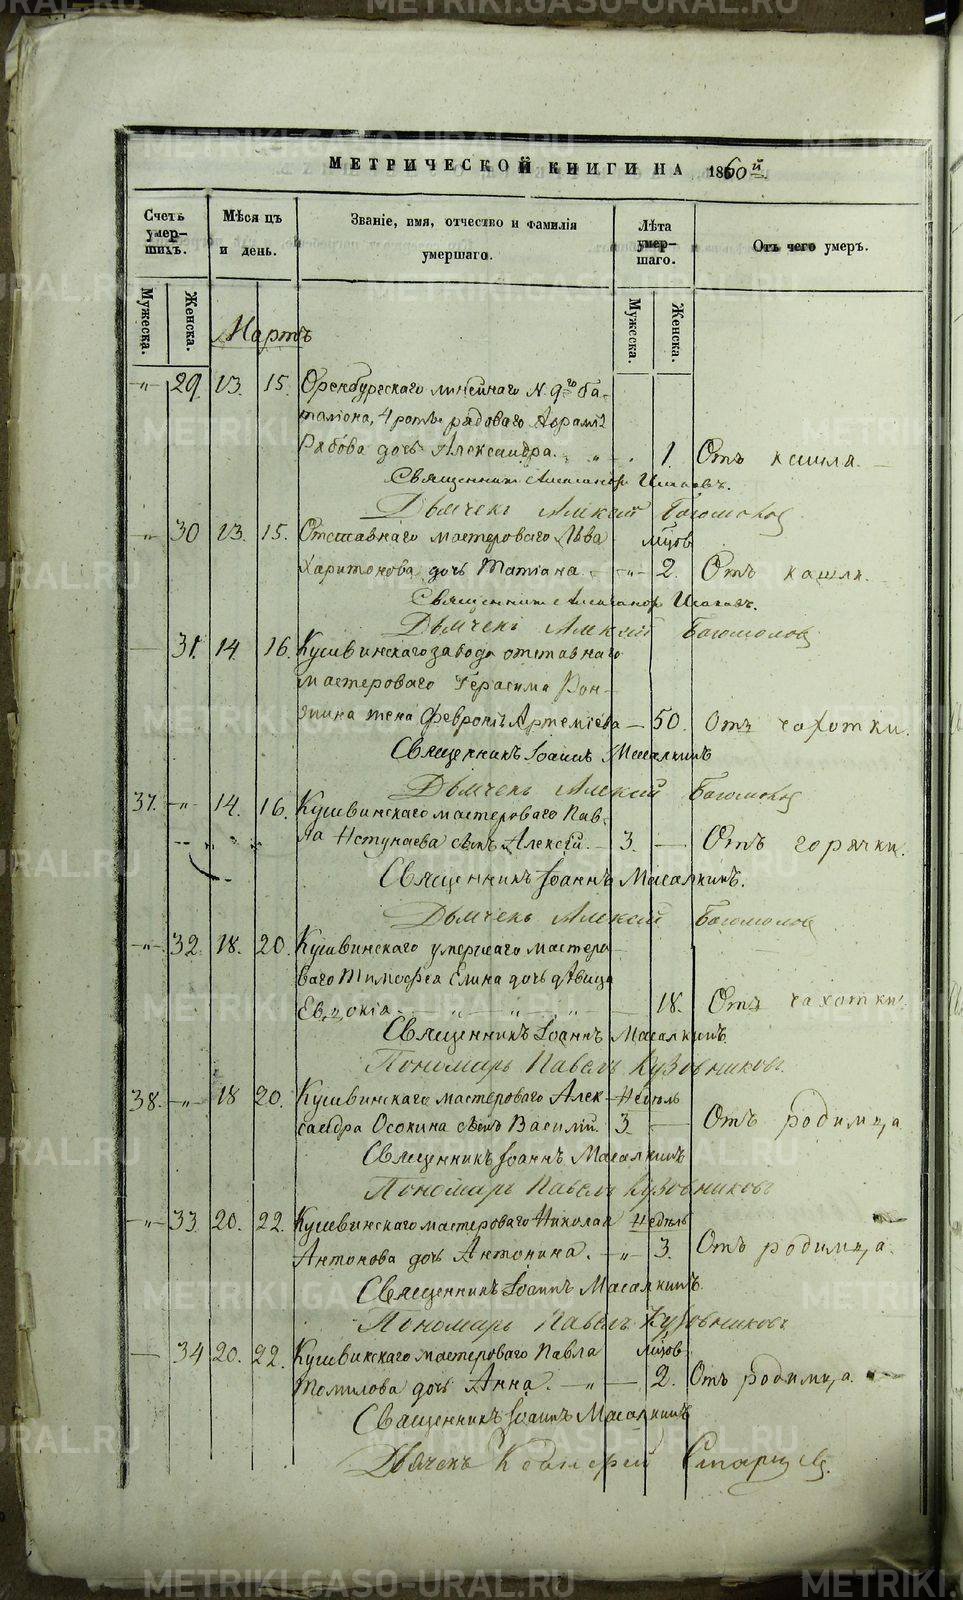 МЕТРИЧЕСКОЙ КНИГИ НА 1860й
Счетъ умер-шихъ.
Мѣсяцъ и день.
Званіе, имя, отчество и фамилія умершаго.
Лѣта умер-шаго.
Отъ чего умеръ.
Мужеска. Женска.
Мужеска. Женска.
Мартъ
-"- 29 13 15. Оренбургскаго линейнаго N. 9го ба-
таліона, 4 роты рядоваго Аврамія
Рябова дочь Александра. " 1. Отъ кашля.
Священникъ Александръ
Дьячекъ Алексій Богомолов
-"- 30 13. 15. Отставнаго мастероваго Льва мцов
Харитонова дочь Татіана. -"- 2. Отъ кашля.
Священникъ Александръ
Дьячекъ Алексій Богомолов
31. 14. 16. Кушвинскаго завода отставнаго
мастероваго Герасима
жена Февронія Артеміева — 50. Отъ чахотки.
Священникъ Іоаннъ Масалкинъ
Дьячекъ Алексій Богомолов
37. -"- 14. 16. Кушвинскаго мастероваго Пав-
ла сынъ Алексій. — 3. — Отъ горячки.
Священникъ Іоаннъ Масалкинъ.
Дьячекъ Алексій Богомолов
-"- 32. 18. 20. Кушвинскаго умершаго мастеро-
ваго Тимофея Елина дочь дѣвица
Евдокія. " " " 18. Отъ чахотки.
Священникъ Іоаннъ Масалкинъ.
Пономарь Павелъ Кузовниковъ.
38. -"- 18 20. Кушвинскаго мастероваго Алек- недѣль
сандра Осокина сынъ Василій. 3 — Отъ родимца
Священникъ Іоаннъ Масалкинъ
Пономарь Павелъ Кузовниковъ
-"- 33 20. 22. Кушвинскаго мастероваго Николая недѣль
Антонова дочь Антонина. -"- 3. Отъ родимца.
Священникъ Іоаннъ Масалкинъ.
Пономарь Павелъ Кузовниковъ
— 34 20. 22. Кушвинскаго мастероваго Павла мцов
Томилова дочь Анна. — " — 2. Отъ родимца.
Священникъ Іоаннъ Масалкинъ
Дьячекъ Старцев.
METRIKI.GASO-URAL.RU